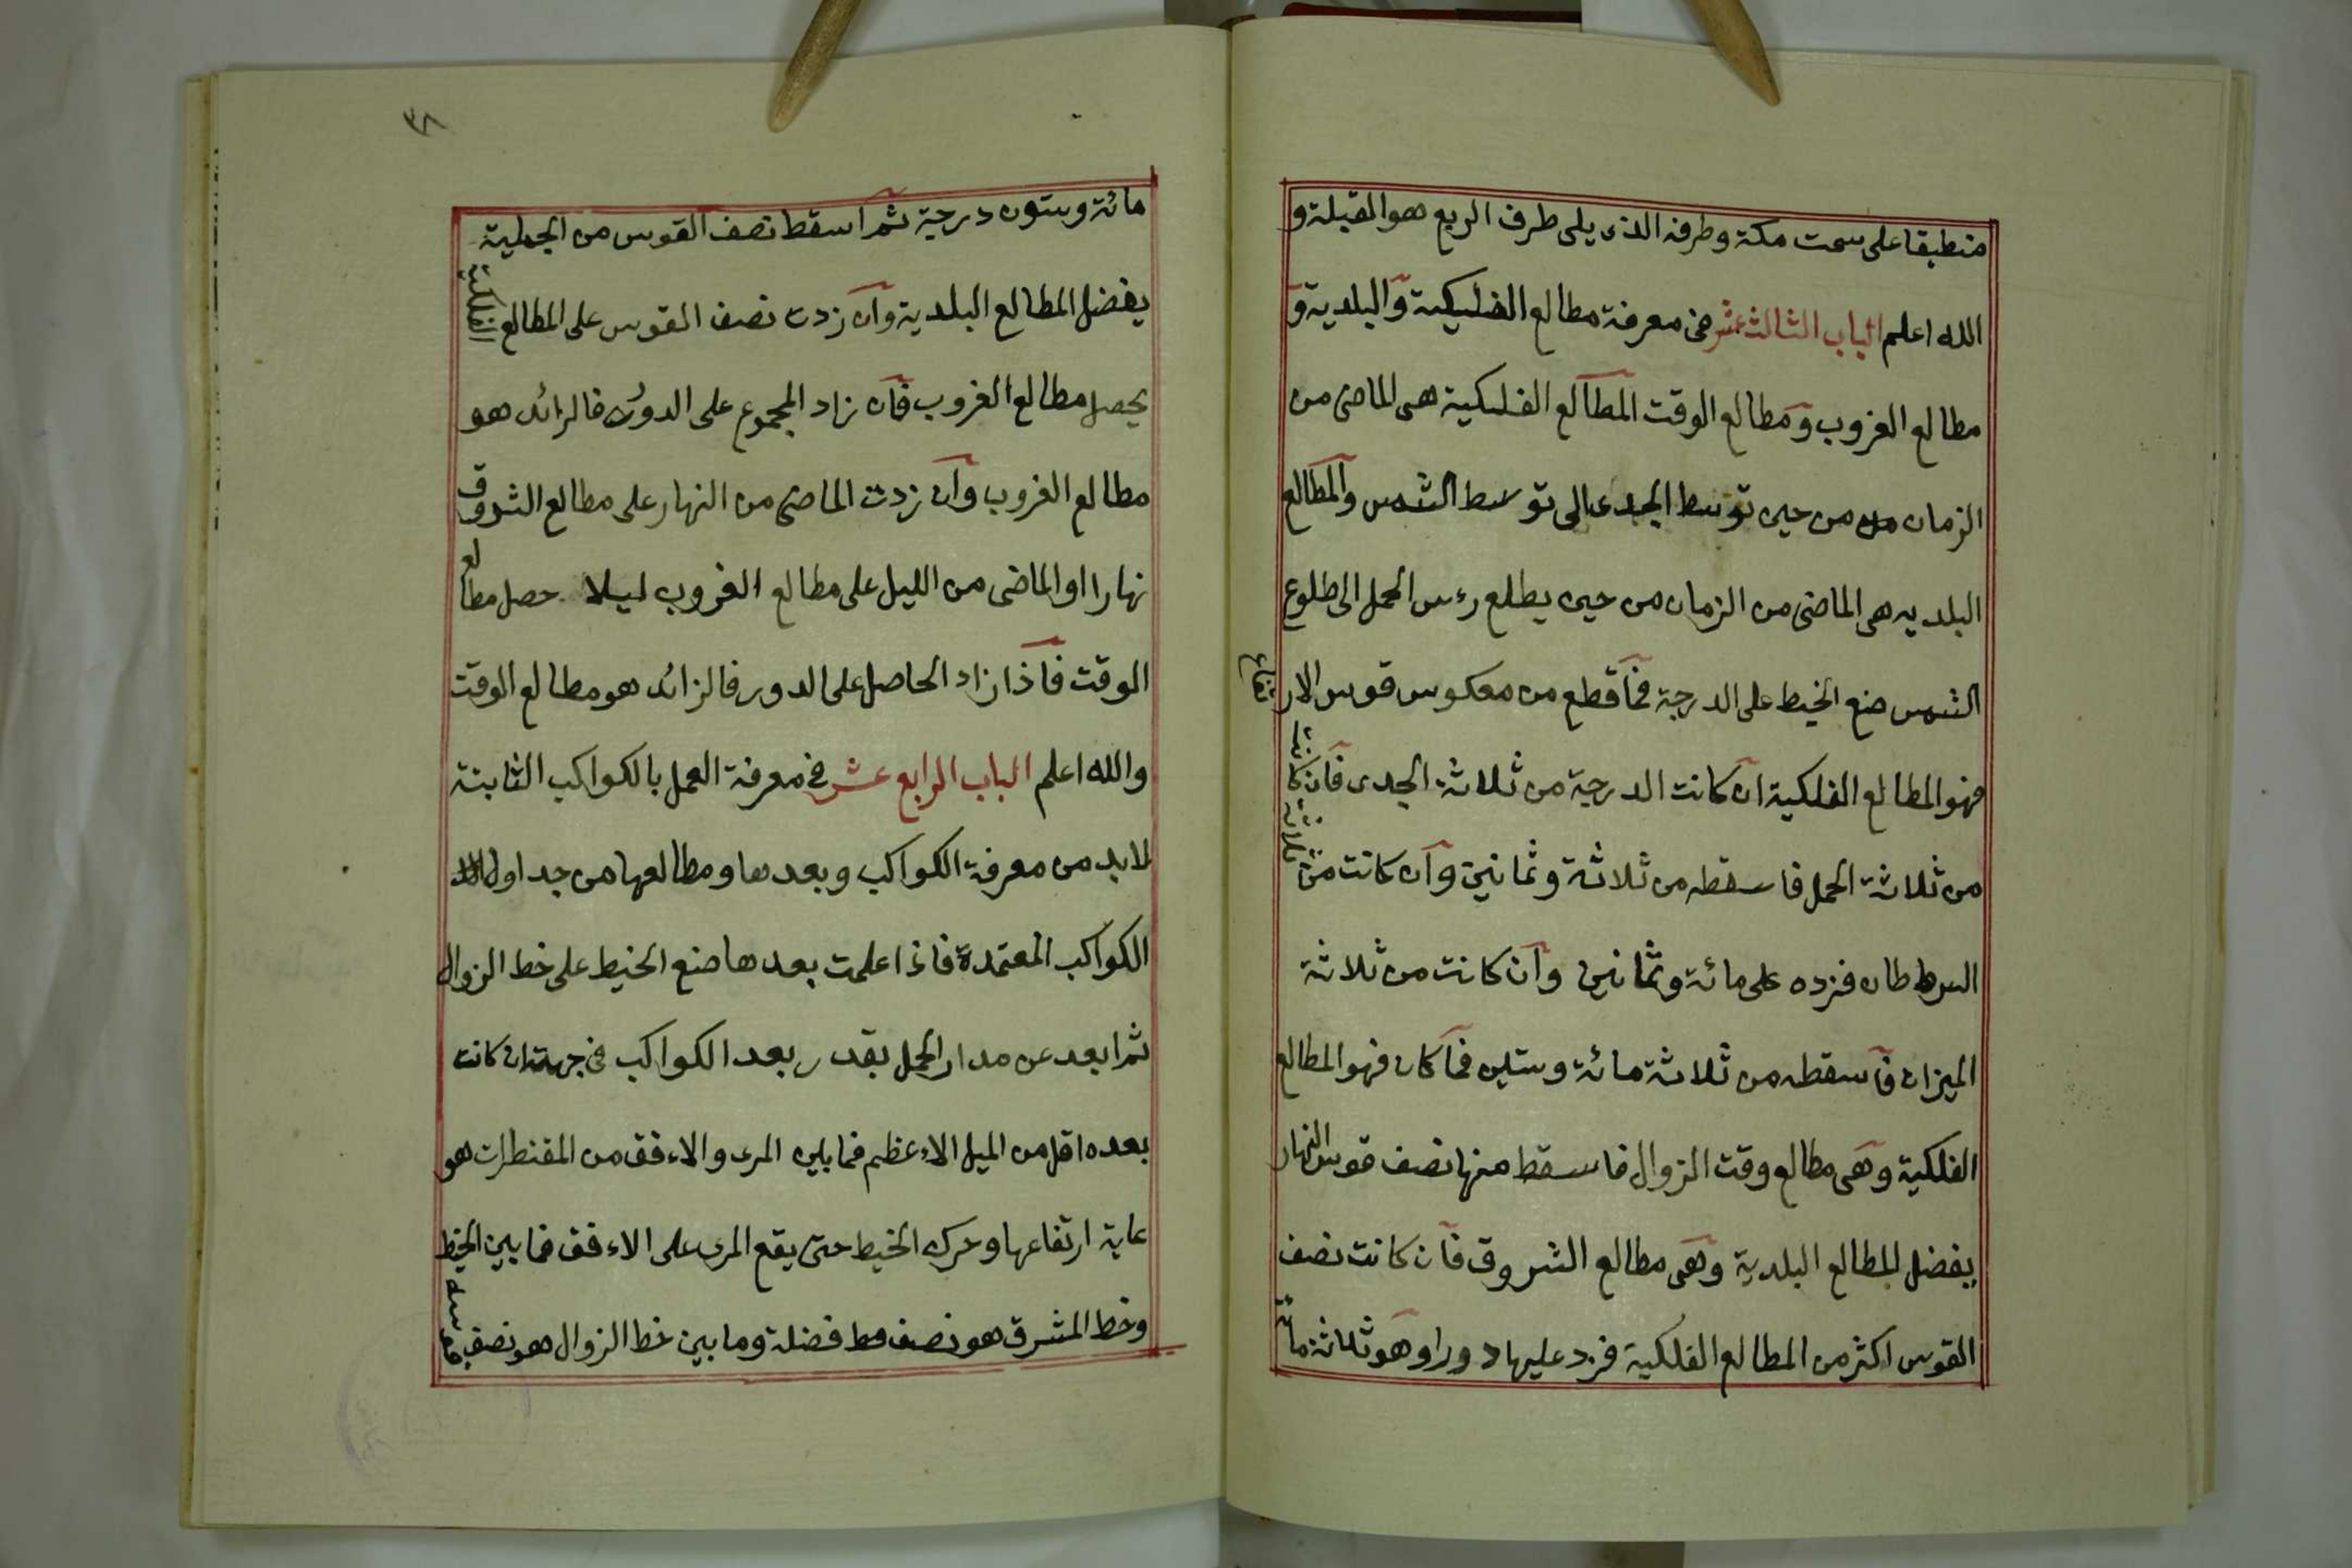 منطبقا على سمت مكة وطرفه الذى يلى طرف الربع هو القبلة و
الله اعلم الباب الثالث عشر فى معرفة مطالع الفليكية والبلدية و
مطالع الغروب ومطالع الوقت المطالع الفلكية هى الماضى من
الزمان من حين توسط الجدى الى توسط الشمس والمطالع
البلديه هى الماضى من الزمان من حين يطلع رءس الحمل الى طلوع
الشمس ضع الخيط على الدرجة فما قطع من معكوس قوس الارتفاع
فهو المطالع الفلكية ان كانت الدرجة من ثلاثة الجدى فان كانت
من ثلاثة الحمل فاسقطه من ثلاثة وثمانين وان كانت من ثلاثة
السرطان فزده على مائة وثمانين وان كانت من ثلاثة
الميزان فاسقطه من ثلاثة مائة وستين فما كان فهو المطالع
الفلكية وهى مطالع وقت الزوال فاسقط منها نصف قوس النهار
يفضل المطالع البلدية وهى مطالع الشروق فان كانت نصف
القوس اكثر من المطالع الفلكية فزد عليها دورا وهو ثلاثة مائة
٣٨
مائة وستون درجة ثم اسقط نصف القوس من الجملية
يفضل المطالع البلدية وان زدت نصف القوس على المطالع الفلكية
يحصل مطالع الغروب فان زاد المجموع على الدور فالزائد هو
مطالع الغروب وان زدت الماضى من النهار على مطالع الشروق
نهارا او الماضى من الليل على مطالع الغروب ليلا حصل مطالع
الوقت فاذا زاد الحاصل على الدور فالزائد هو مطالع الوقت
والله اعلم الباب الرابع عشر فى معرفة العمل بالكواكب الثابتة
لا بد من معرفة الكواكب وبعدها ومطالعها من جداول
الكواكب المعتمدة فاذا علمت بعدها ضع الخيط على خط الزوال
ثم ابعد عن مدار الحمل بقدر بعد الكواكب فى جهته ان كانت
بعده اقل من الميل الاءعظم فما بين المرى والاءفق من المقنطرات هو
غاية ارتفاعها وحرك الخيط حتى يقع المرى على الاءفق فما بين الخيط
وخط المشرق هو نصف فضلة وما بين خط الزوال هو نصف قوسه